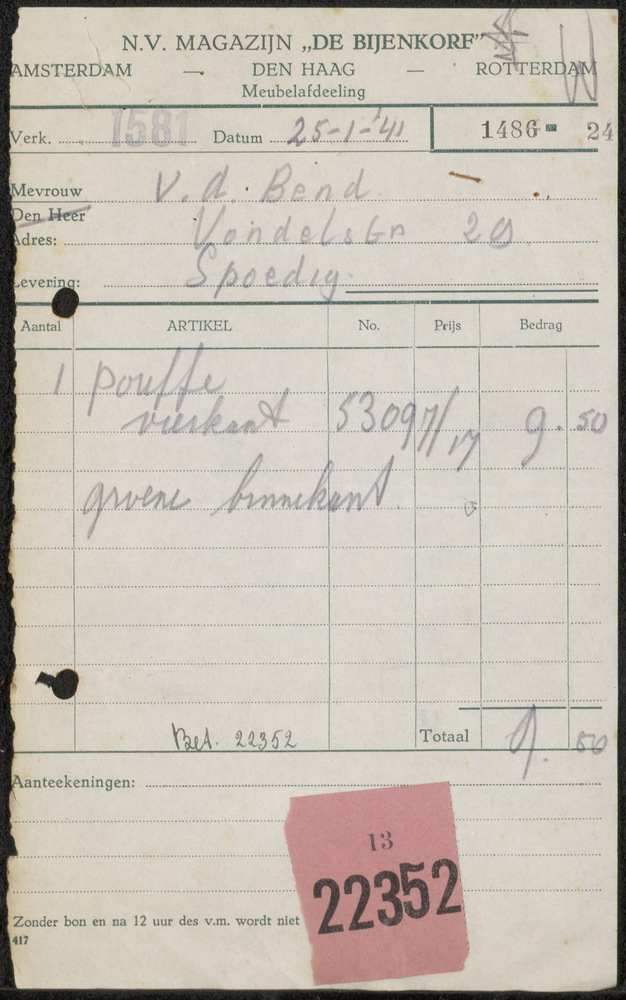 N.V. MAGAZIJN „DE BIJENKORF”
AMSTERDAM — DEN HAAG — ROTTERDAM
Meubelafdeeling
Verk. 1581 Datum 25-1-'41 1486 - 24
Mevrouw V. d. Bend
Den Heer
Adres: Vondelstr 29
Levering: Spoedig
Aantal ARTIKEL No. Prijs Bedrag
1 pouffe
vierkant 53097/17 9.50
groene binnekant.
Bet. 22352 Totaal 9.50
Aanteekeningen:
13
22352
Zonder bon en na 12 uur des v.m. wordt niet
417